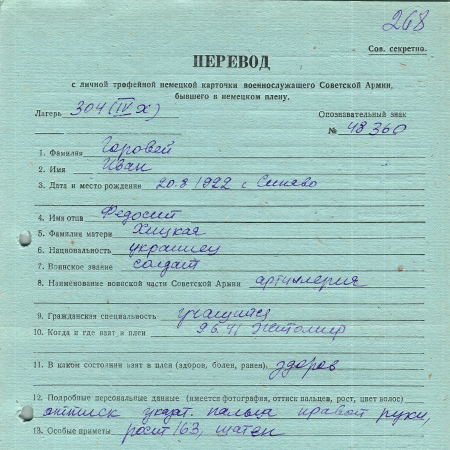 268
Сов. секретно.
ПЕРЕВОД
с личной трофейной немецкой карточки военнослужащего Советской Армии,
бывшего в немецком плену.
Лагерь 304 (IV X) Опознавательный знак
№ 48360
1. Фамилия Горовей
2. Имя Иван
3. Дата и место рождения 20.8.1922 с. Синяво
4. Имя отца Федосит
5. Фамилия матери Хицкая
6. Национальность украинец
7. Воинское звание солдат
8. Наименование воинской части Советской Армии артиллерия
9. Гражданская специальность учащийся
10. Когда и где взят в плен 9.6.41 Житомир
11. В каком состоянии взят в плен (здоров, болен, ранен) здоров
12. Подробные персональные данные (имеется фотография, оттиск пальцев, рост, цвет волос)
оттиск указат. пальца правой руки,
13. Особые приметы рост 163, шатен